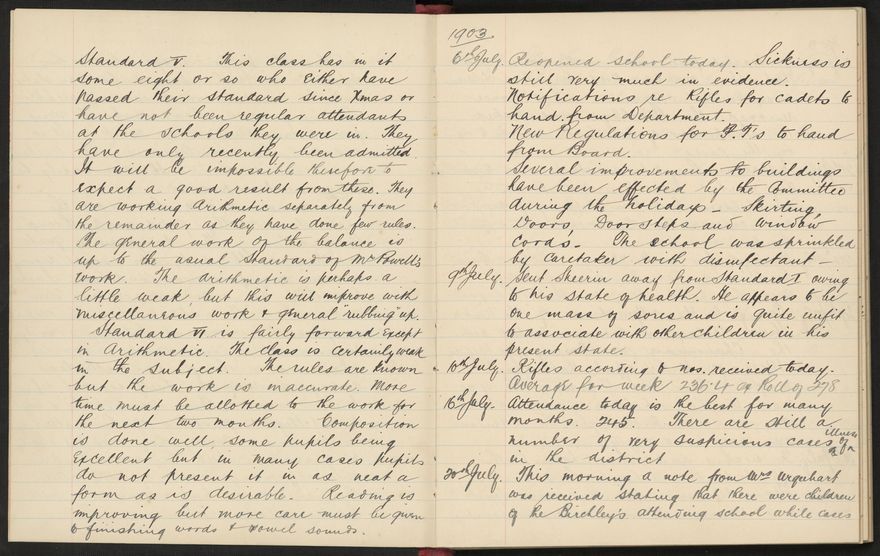 Standard V. This class has in it
some eight or so who either have
passed their standard since Xmas or
have not been regular attendants
at the schools they were in. They
have only recently been admitted
It will be impossible therefore to
expect a good result from these. They
are working Arithmetic separately from
the remainder as they have done few rules.
The general work of the balance is
up to the usual standard of Mr Powell's
work. The arithmetic is perhaps a
little weak, but this will improve with
miscellaneous work & general "rubbing" up.
Standard VI is fairly forward except
in Arithmetic. The class is certainly weak
in the subject. The rules are known
but the work is inaccurate. More
time must be allotted to the work for
the next two months. Composition
is done well, some pupils being
excellent but in many cases pupils
do not present it in as neat a
form as is desirable. Reading is
improving but more care must be given
to finishing words & vowel sounds.
1903
6th July. Reopened school today. Sickness is
still very much in evidence.
Notifications re Rifles for cadets to
hand from Department.
New Regulations for P.T's to hand
from Board.
Several improvements to buildings
have been effected by the Committee
during the holidays - Skirting,
Doors, Door steps and window
cords - The school was sprinkled
by caretaker with disinfectant -
9th July. Sent Skerrin away from Standard I owing
to his state of health. He appears to be
one mass of sores and is quite unfit
to associate with other children in his
present state.
10th July. Rifles according to nos. received today.
Average for week 236.4 ex Roll of 278
16th July. Attendance today is the best for many
months. 245. There are still a
number of very suspicious cases of illness
in the district
20th July. This morning a note from Mrs Urquhart
was received stating that there were children
of the Birchley's attending school while cases